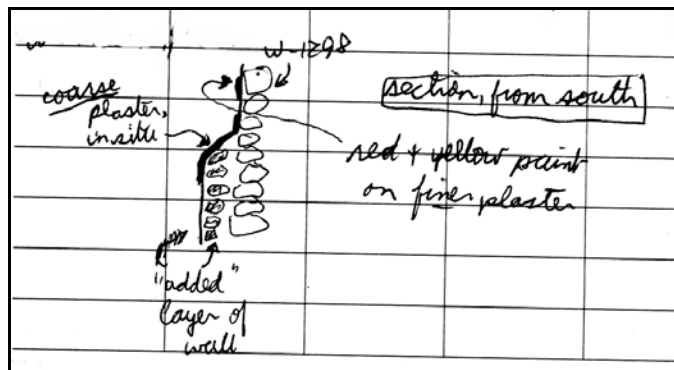 W-1298
section, from south
coarse
plaster,
in situ
red + yellow paint
on finer plaster
"added"
layer of
wall